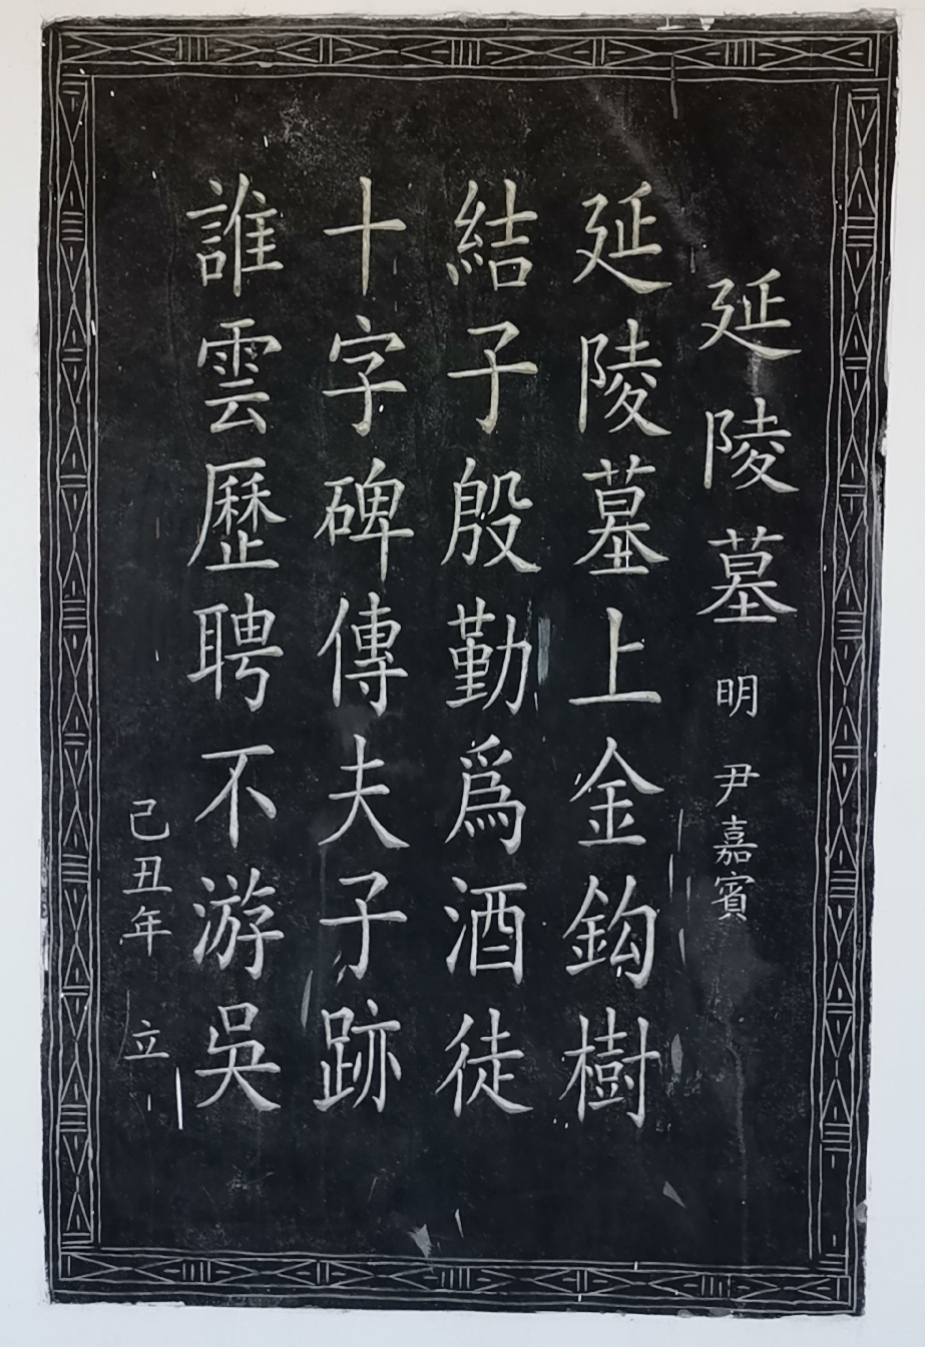 延陵墓 明 尹嘉賓
延陵墓上金鈎樹
結子殷勤爲酒徒
十字碑傳夫子跡
誰雲歷聘不游吳
己丑年 立